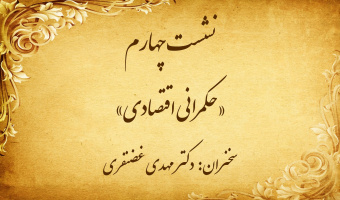 نشست چهارم
«حکمرانی اقتصادی»
سخنران: دکتر مهدی غضنفری